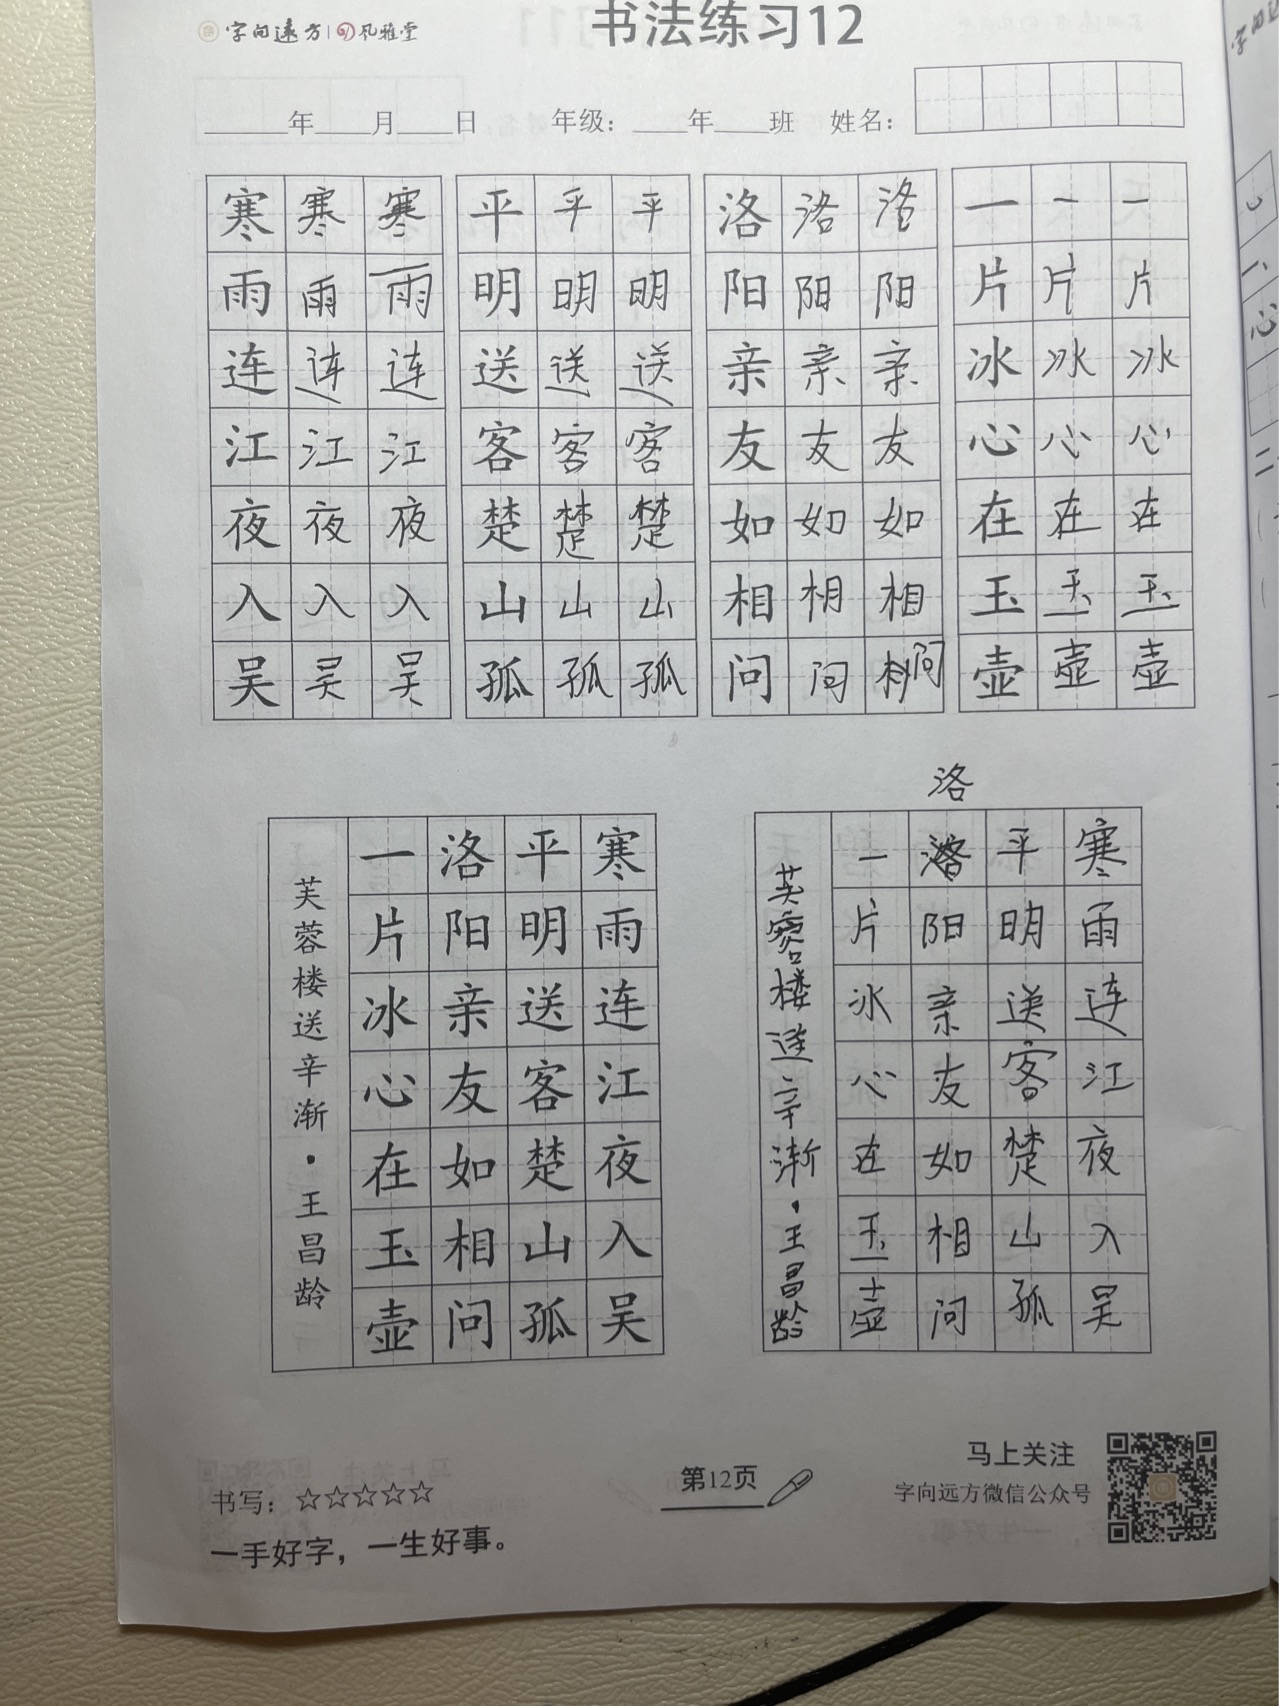 字向远方 风雅堂
书法练习12
______年____月____日 年级：____年____班 姓名：
寒寒寒 平平平 洛洛洛 一一一
雨雨雨 明明明 阳阳阳 片片片
连连连 送送送 亲亲亲 冰冰冰
江江江 客客客 友友友 心心心
夜夜夜 楚楚楚 如如如 在在在
入入入 山山山 相相相 玉玉玉
吴吴吴 孤孤孤 问问问 壶壶壶
寒雨连江夜入吴
平明送客楚山孤
洛阳亲友如相问
一片冰心在玉壶
芙蓉楼送辛渐·王昌龄
洛
寒雨连江夜入吴
平明送客楚山孤
洛阳亲友如相问
一片冰心在玉壶
芙蓉楼送辛渐·王昌龄
书写：☆☆☆☆☆
一手好字，一生好事。
第12页
马上关注
字向远方微信公众号